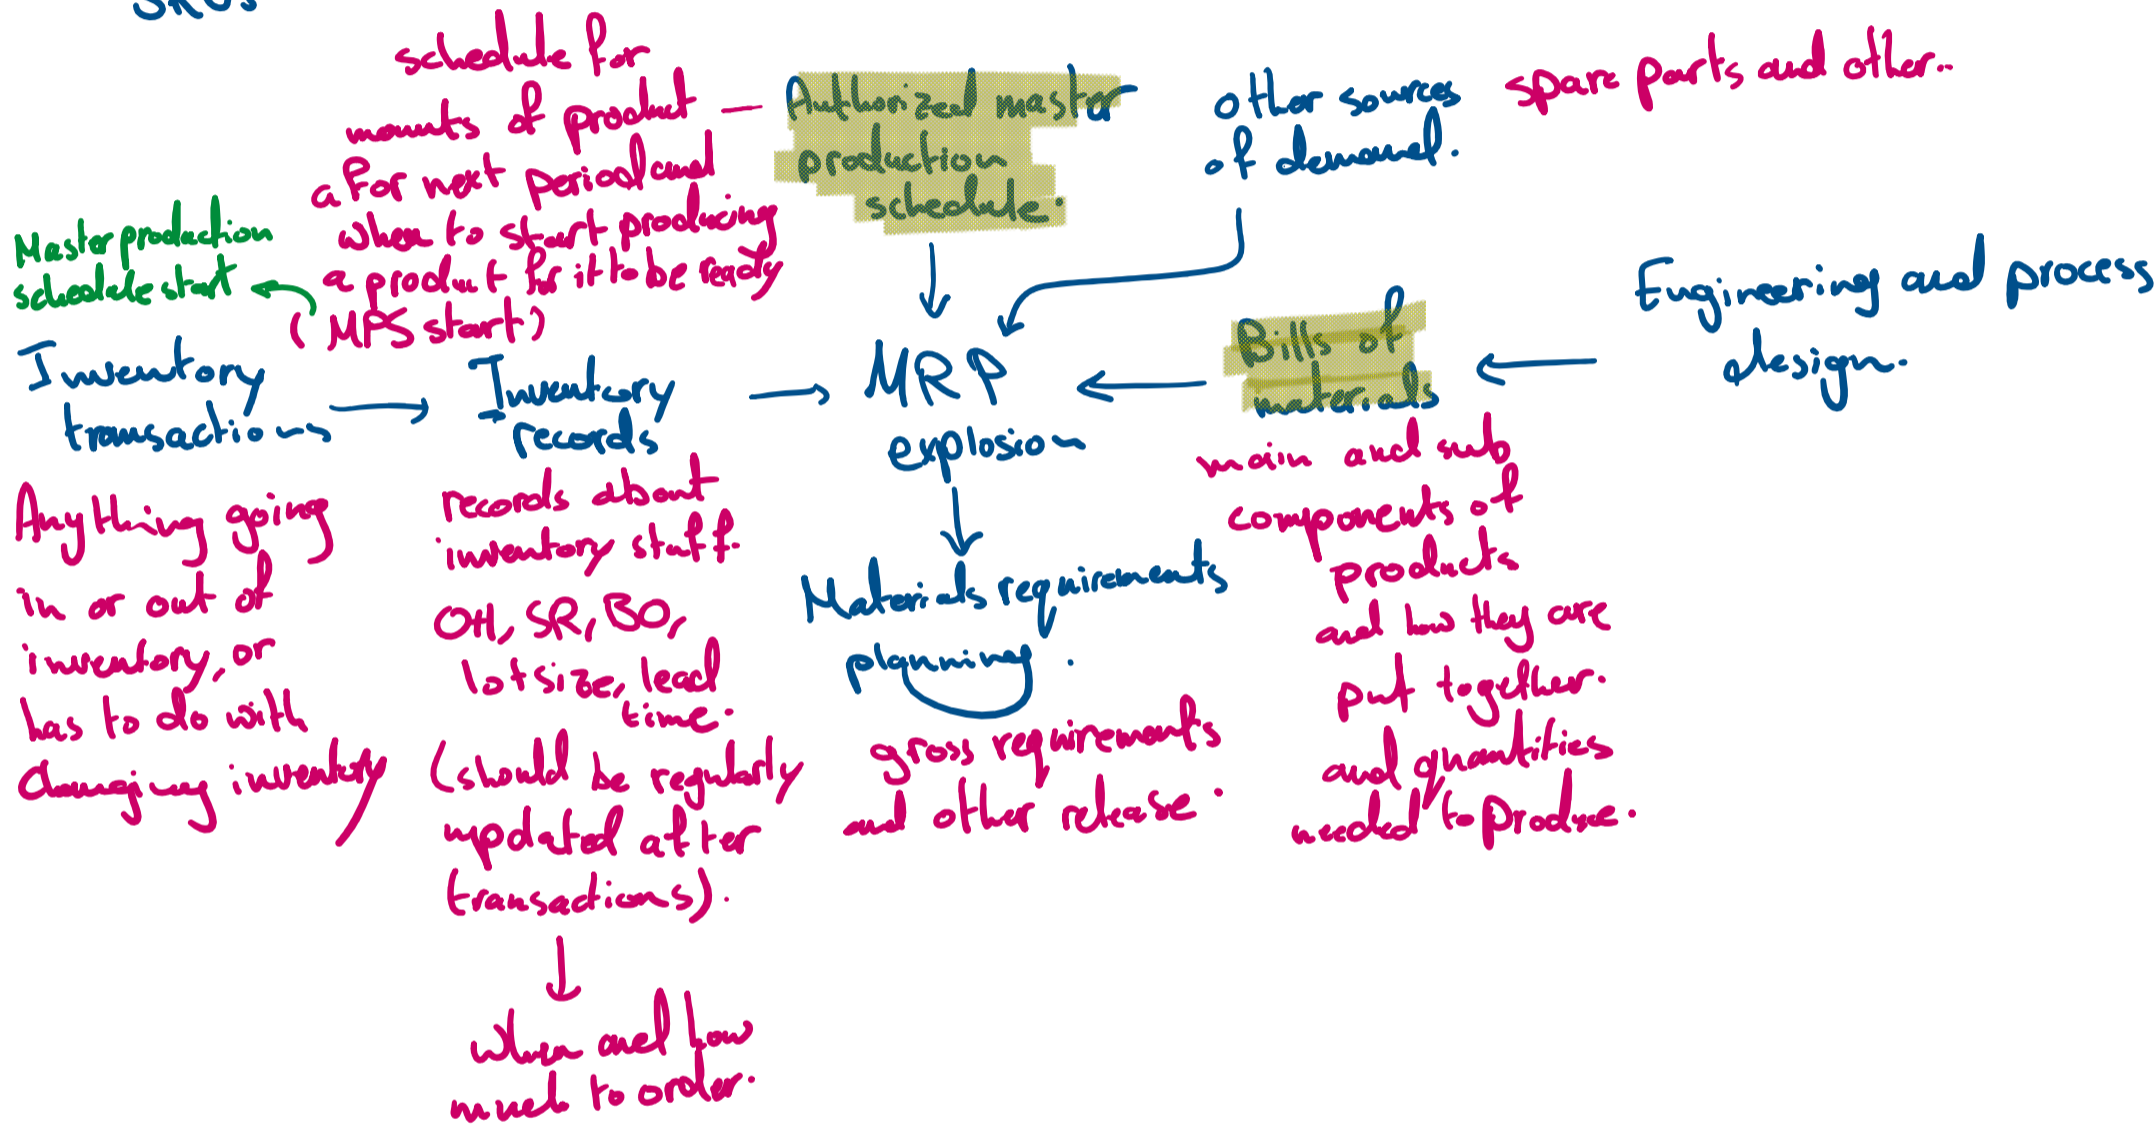 SKUs
schedule for
mounts of product
a for next period and
when to start producing
a product for it to be ready
(MPS start)
Master production
schedule start
Authorized master
production
schedule.
other sources
of demand.
spare parts and other..
Engineering and process
design.
Inventory
transactions
Inventory
records
MRP
explosion
Bills of
materials
Anything going
in or out of
inventory, or
has to do with
Changing inventory
records about
inventory stuff.
OH, SR, BO,
lot size, lead
time.
(should be regularly
updated after
transactions).
when and how
much to order.
Materials requirements
planning.
gross requirements
and other release.
main and sub
components of
products
and how they are
put together.
and quantities
needed to produce.